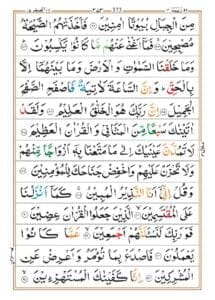 مِنَ الْجِبَالِ بُيُوْتًا اٰمِنِيْنَ ۝ فَاَخَذَتْهُمُ الصَّيْحَةُ
مُصْبِحِيْنَ ۝ فَمَاۤ اَغْنٰى عَنْهُمْ مَّا كَانُوْا يَكْسِبُوْنَ ۝
وَمَا خَلَقْنَا السَّمٰوٰتِ وَالْاَرْضَ وَمَا بَيْنَهُمَاۤ اِلَّا
بِالْحَقِّ ؕ وَاِنَّ السَّاعَةَ لَاٰتِيَةٌ فَاصْفَحِ الصَّفْحَ
الْجَمِيْلَ ۝ اِنَّ رَبَّكَ هُوَ الْخَلّٰقُ الْعَلِيْمُ ۝ وَلَقَدْ
اٰتَيْنٰكَ سَبْعًا مِّنَ الْمَثَانِيْ وَالْقُرْاٰنَ الْعَظِيْمَ ۝
لَا تَمُدَّنَّ عَيْنَيْكَ اِلٰى مَا مَتَّعْنَا بِهٖۤ اَزْوَاجًا مِّنْهُمْ
وَلَا تَحْزَنْ عَلَيْهِمْ وَاخْفِضْ جَنَاحَكَ لِلْمُؤْمِنِيْنَ ۝
وَقُلْ اِنِّيْۤ اَنَا النَّذِيْرُ الْمُبِيْنُ ۝ كَمَاۤ اَنْزَلْنَا
عَلَى الْمُقْتَسِمِيْنَ ۝ الَّذِيْنَ جَعَلُوا الْقُرْاٰنَ عِضِيْنَ ۝
فَوَرَبِّكَ لَنَسْـَٔلَنَّهُمْ اَجْمَعِيْنَ ۝ عَمَّا كَانُوْا
يَعْمَلُوْنَ ۝ فَاصْدَعْ بِمَا تُؤْمَرُ وَاَعْرِضْ عَنِ
الْمُشْرِكِيْنَ ۝ اِنَّا كَفَيْنٰكَ الْمُسْتَهْزِءِيْنَ ۝